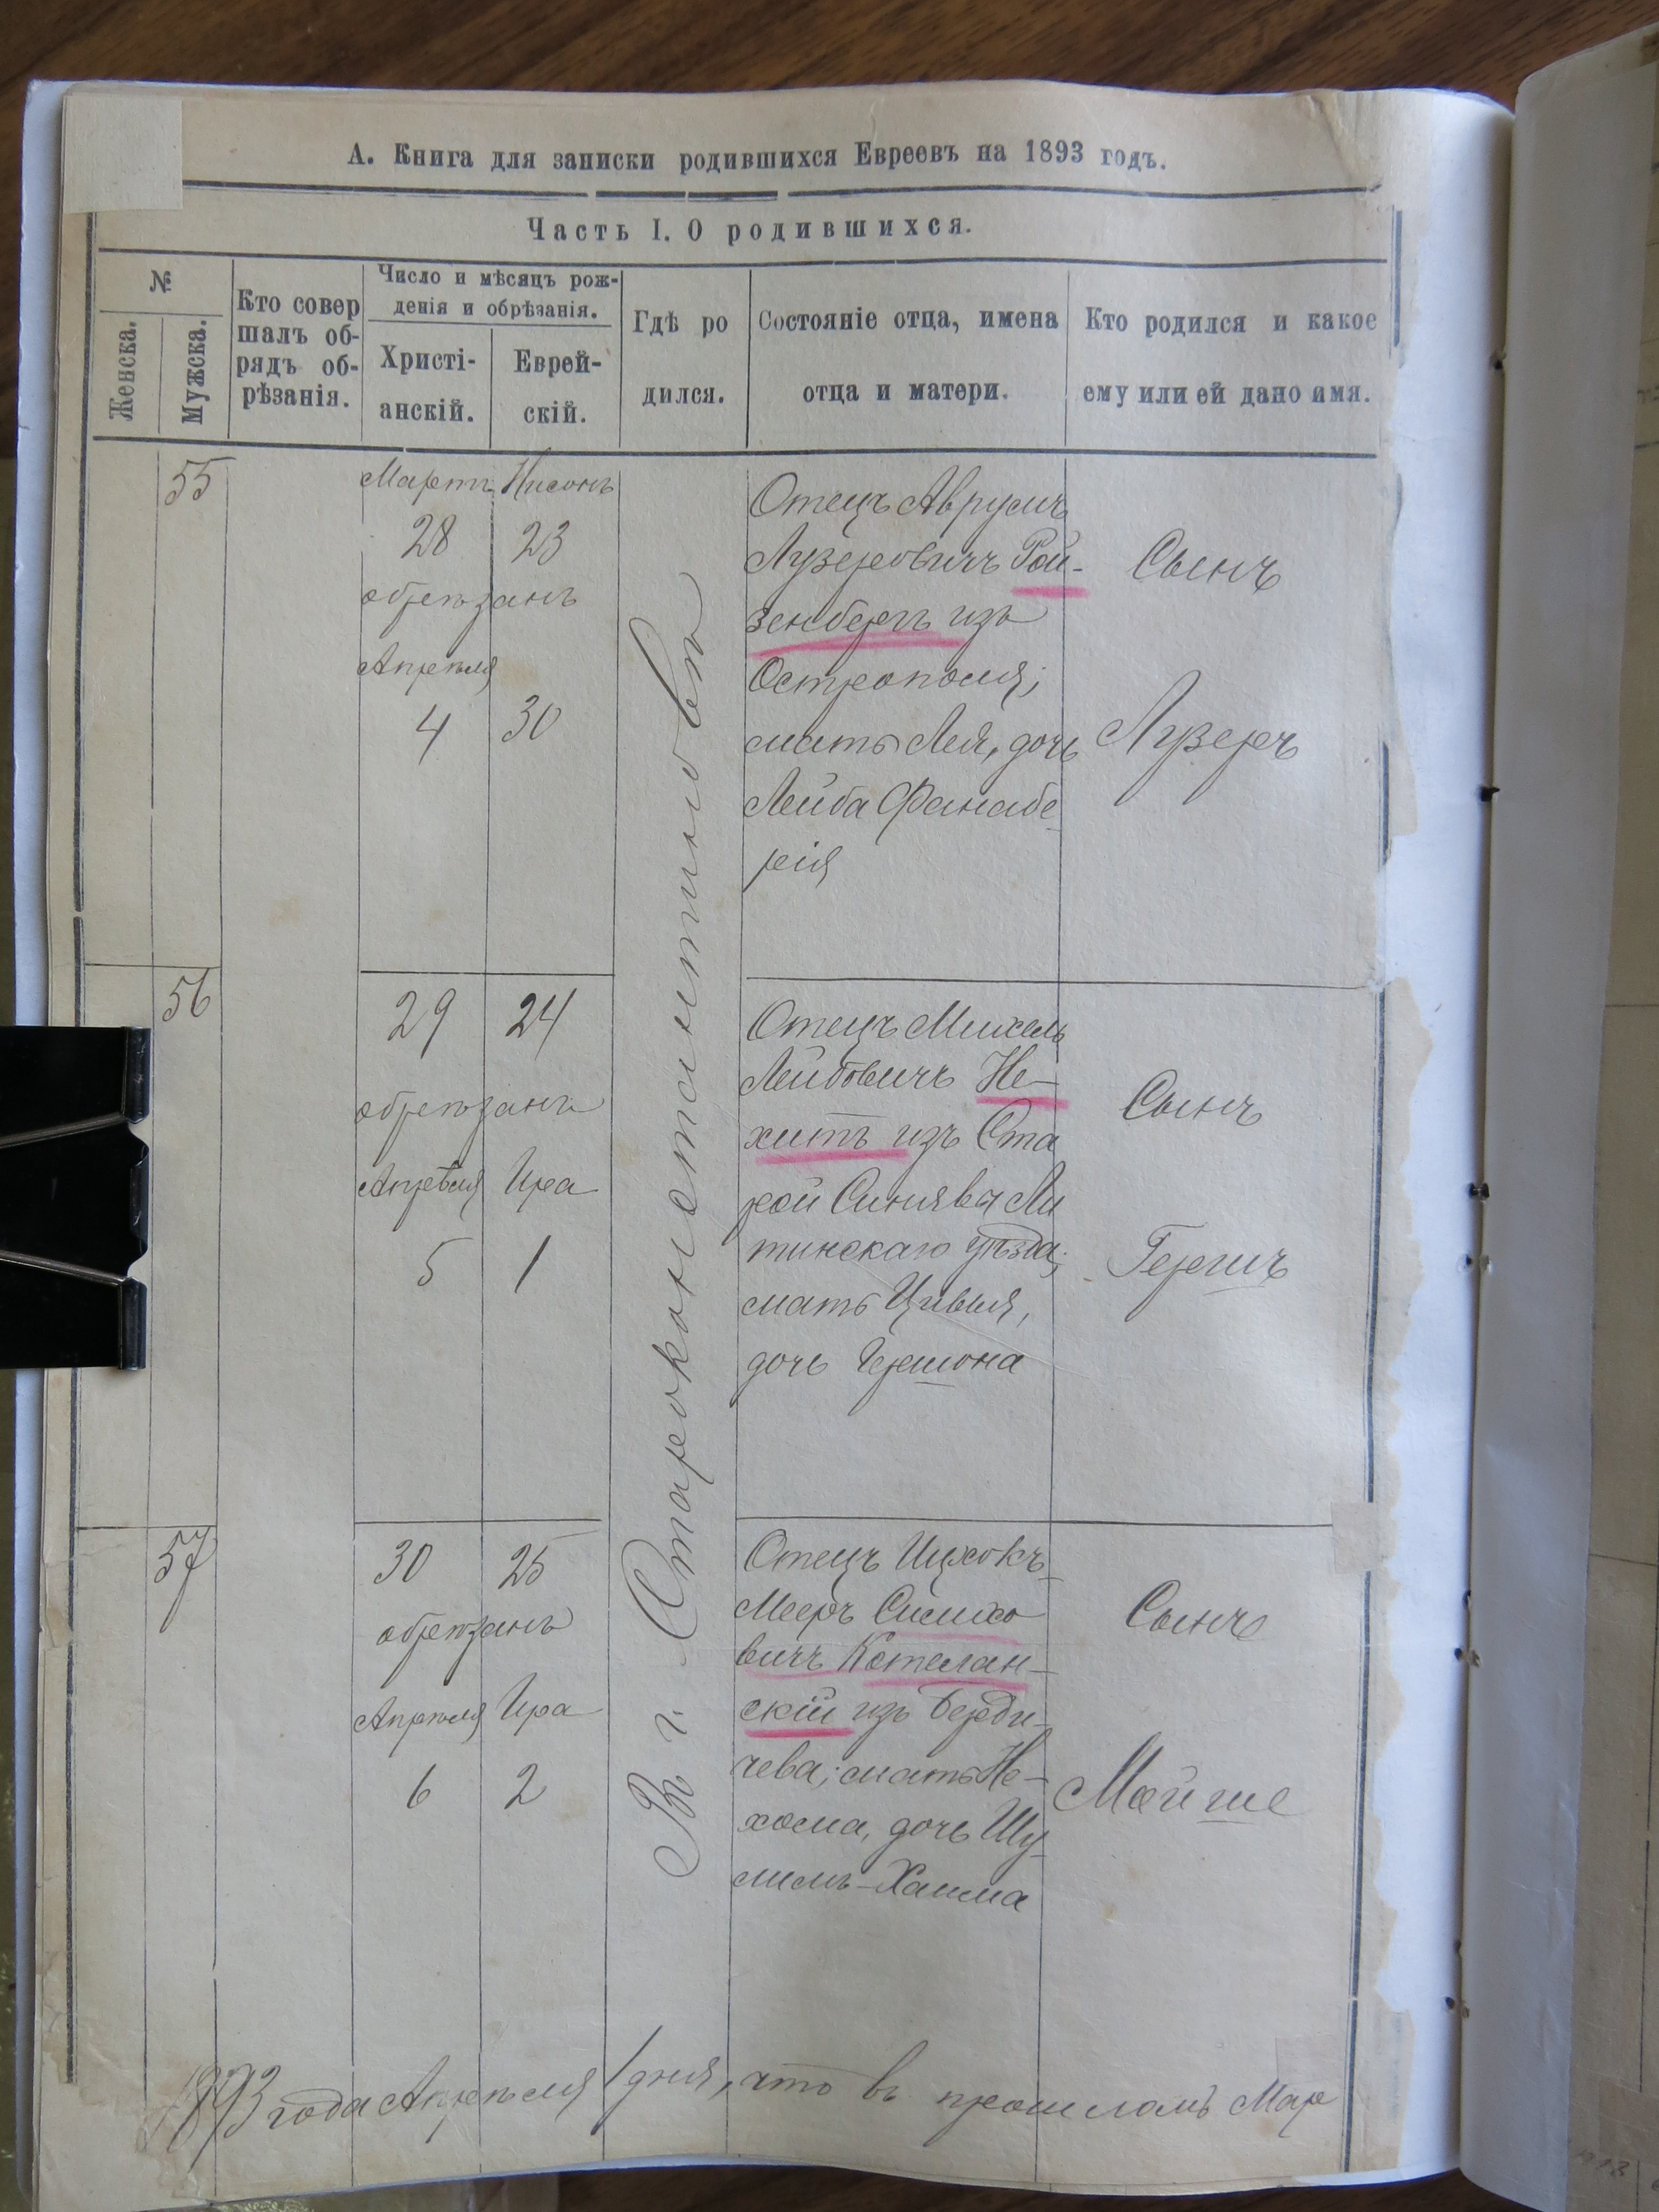 А. Книга для записки родившихся Евреевъ на 1893 годъ.
Часть I. О родившихся.
№
Женска.
Мужска.
Кто совер
шалъ об-
рядъ об-
рѣзанія.
Число и мѣсяцъ рож-
денія и обрѣзанія.
Христі-
анскій.
Еврей-
скій.
Гдѣ ро
дился.
Состояніе отца, имена
отца и матери.
Кто родился и какое
ему или ей дано имя.
55
Мартъ Нисонъ
28 23
обрѣзанъ
Апрѣля
4 30
В г. Староконстантиновѣ
Отецъ Аврумъ
Лузеровичъ Рой-
зенбергъ изъ
Острополя;
мать Лея, дочь
Лейба Фанабе-
рія
Сынъ
Лузеръ
56
29 24
обрѣзанъ
Апрѣля Ира
5 1
Отецъ Михель
Лейбовичъ Не-
хитъ изъ Ста
рой Синявы Ли
тинскаго уѣзда;
мать Цивья,
дочь Гершона
Сынъ
Гершъ
57
30 25
обрѣзанъ
Апрѣля Ира
6 2
Отецъ Ицхокъ-
Мееръ Симхо
вичъ Котелан-
скій изъ Берди-
чева; мать Не-
хома, дочь Шу-
лимъ-Хаима
Сынъ
Мойше
1893 года Апрѣля 1 дня, что въ прошломъ Мар